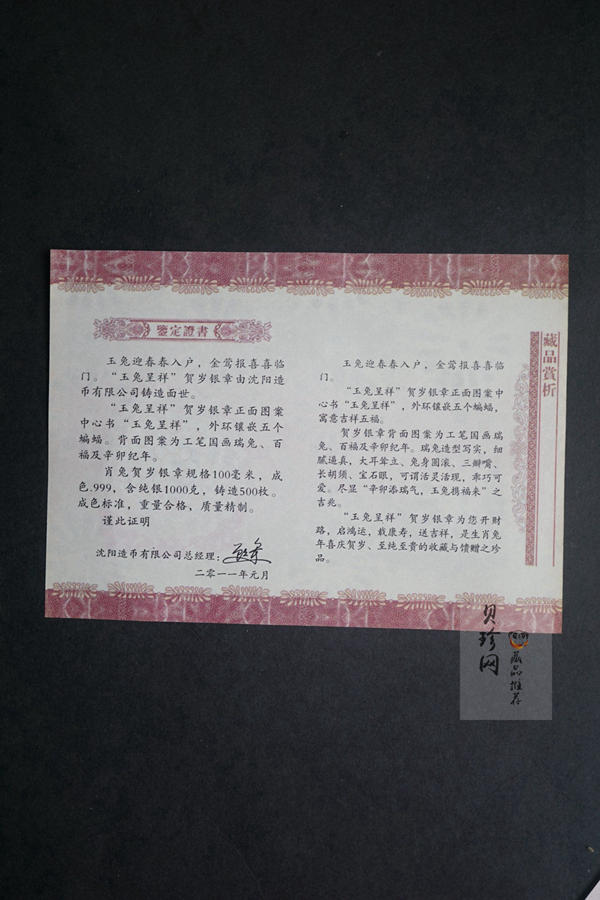 鉴定證書
玉兔迎春春入户，金莺报喜喜临
门。“玉兔呈祥”贺岁银章由沈阳造
币有限公司铸造面世。
“玉兔呈祥”贺岁银章正面图案
中心书“玉兔呈祥”，外环镶嵌五个
蝙蝠。背面图案为工笔国画瑞兔、百
福及辛卯纪年。
肖兔贺岁银章规格100毫米，成
色.999，含纯银1000克，铸造500枚。
成色标准，重量合格，质量精制。
谨此证明
沈阳造币有限公司总经理：
二零一一年元月
藏品赏析
玉兔迎春春入户，金莺报喜喜临
门。
“玉兔呈祥”贺岁银章正面图案中
心书“玉兔呈祥”，外环镶嵌五个蝙蝠，
寓意吉祥五福。
贺岁银章背面图案为工笔国画瑞
兔、百福及辛卯纪年。瑞兔造型写实，细
腻逼真，大耳耸立、兔身圆滚、三瓣嘴、
长胡须、宝石眼，可谓活灵活现，乖巧可
爱。尽显“辛卯添瑞气，玉兔携福来”之
吉兆。
“玉兔呈祥”贺岁银章为您开财
路，启鸿运，载康寿，送吉祥，是生肖兔
年喜庆贺岁、至纯至贵的收藏与馈赠之珍
品。
贝珍网
藏品推荐